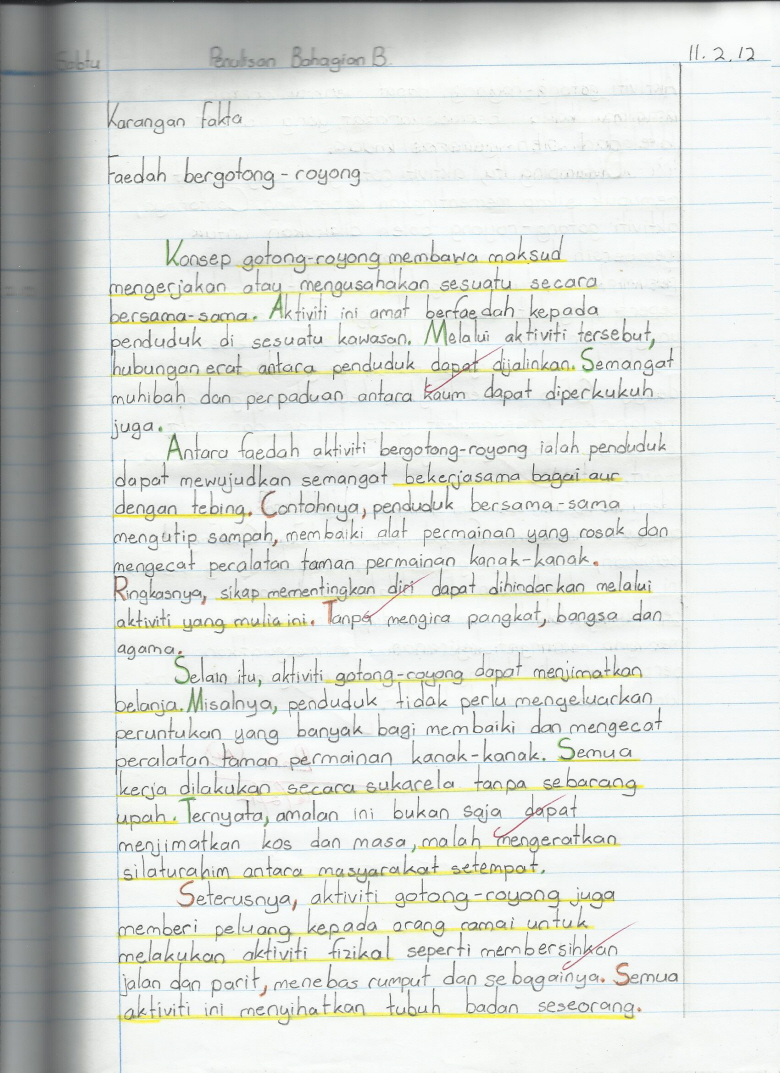 Sabtu Penulisan Bahagian B. 11.2.12
Karangan Fakta
Faedah bergotong-royong
Konsep gotong-royong membawa maksud
mengerjakan atau mengusahakan sesuatu secara
bersama-sama. Aktiviti ini amat berfaedah kepada
penduduk di sesuatu kawasan. Melalui aktiviti tersebut,
hubungan erat antara penduduk dapat dijalinkan. Semangat
muhibah dan perpaduan antara kaum dapat diperkukuh
juga.
Antara faedah aktiviti bergotong-royong ialah penduduk
dapat mewujudkan semangat bekerjasama bagai aur
dengan tebing. Contohnya, penduduk bersama-sama
mengutip sampah, membaiki alat permainan yang rosak dan
mengecat peralatan taman permainan kanak-kanak.
Ringkasnya, sikap mementingkan diri dapat dihindarkan melalui
aktiviti yang mulia ini. Tanpa mengira pangkat, bangsa dan
agama.
Selain itu, aktiviti gotong-royong dapat menjimatkan
belanja. Misalnya, penduduk tidak perlu mengeluarkan
peruntukan yang banyak bagi membaiki dan mengecat
peralatan taman permainan kanak-kanak. Semua
kerja dilakukan secara sukarela tanpa sebarang
upah. Ternyata, amalan ini bukan saja dapat
menjimatkan kos dan masa, malah mengeratkan
silaturahim antara masyarakat setempat.
Seterusnya, aktiviti gotong-royong juga
memberi peluang kepada orang ramai untuk
melakukan aktiviti fizikal seperti membersihkan
jalan dan parit, menebas rumput dan sebagainya. Semua
aktiviti ini menyihatkan tubuh badan seseorang.